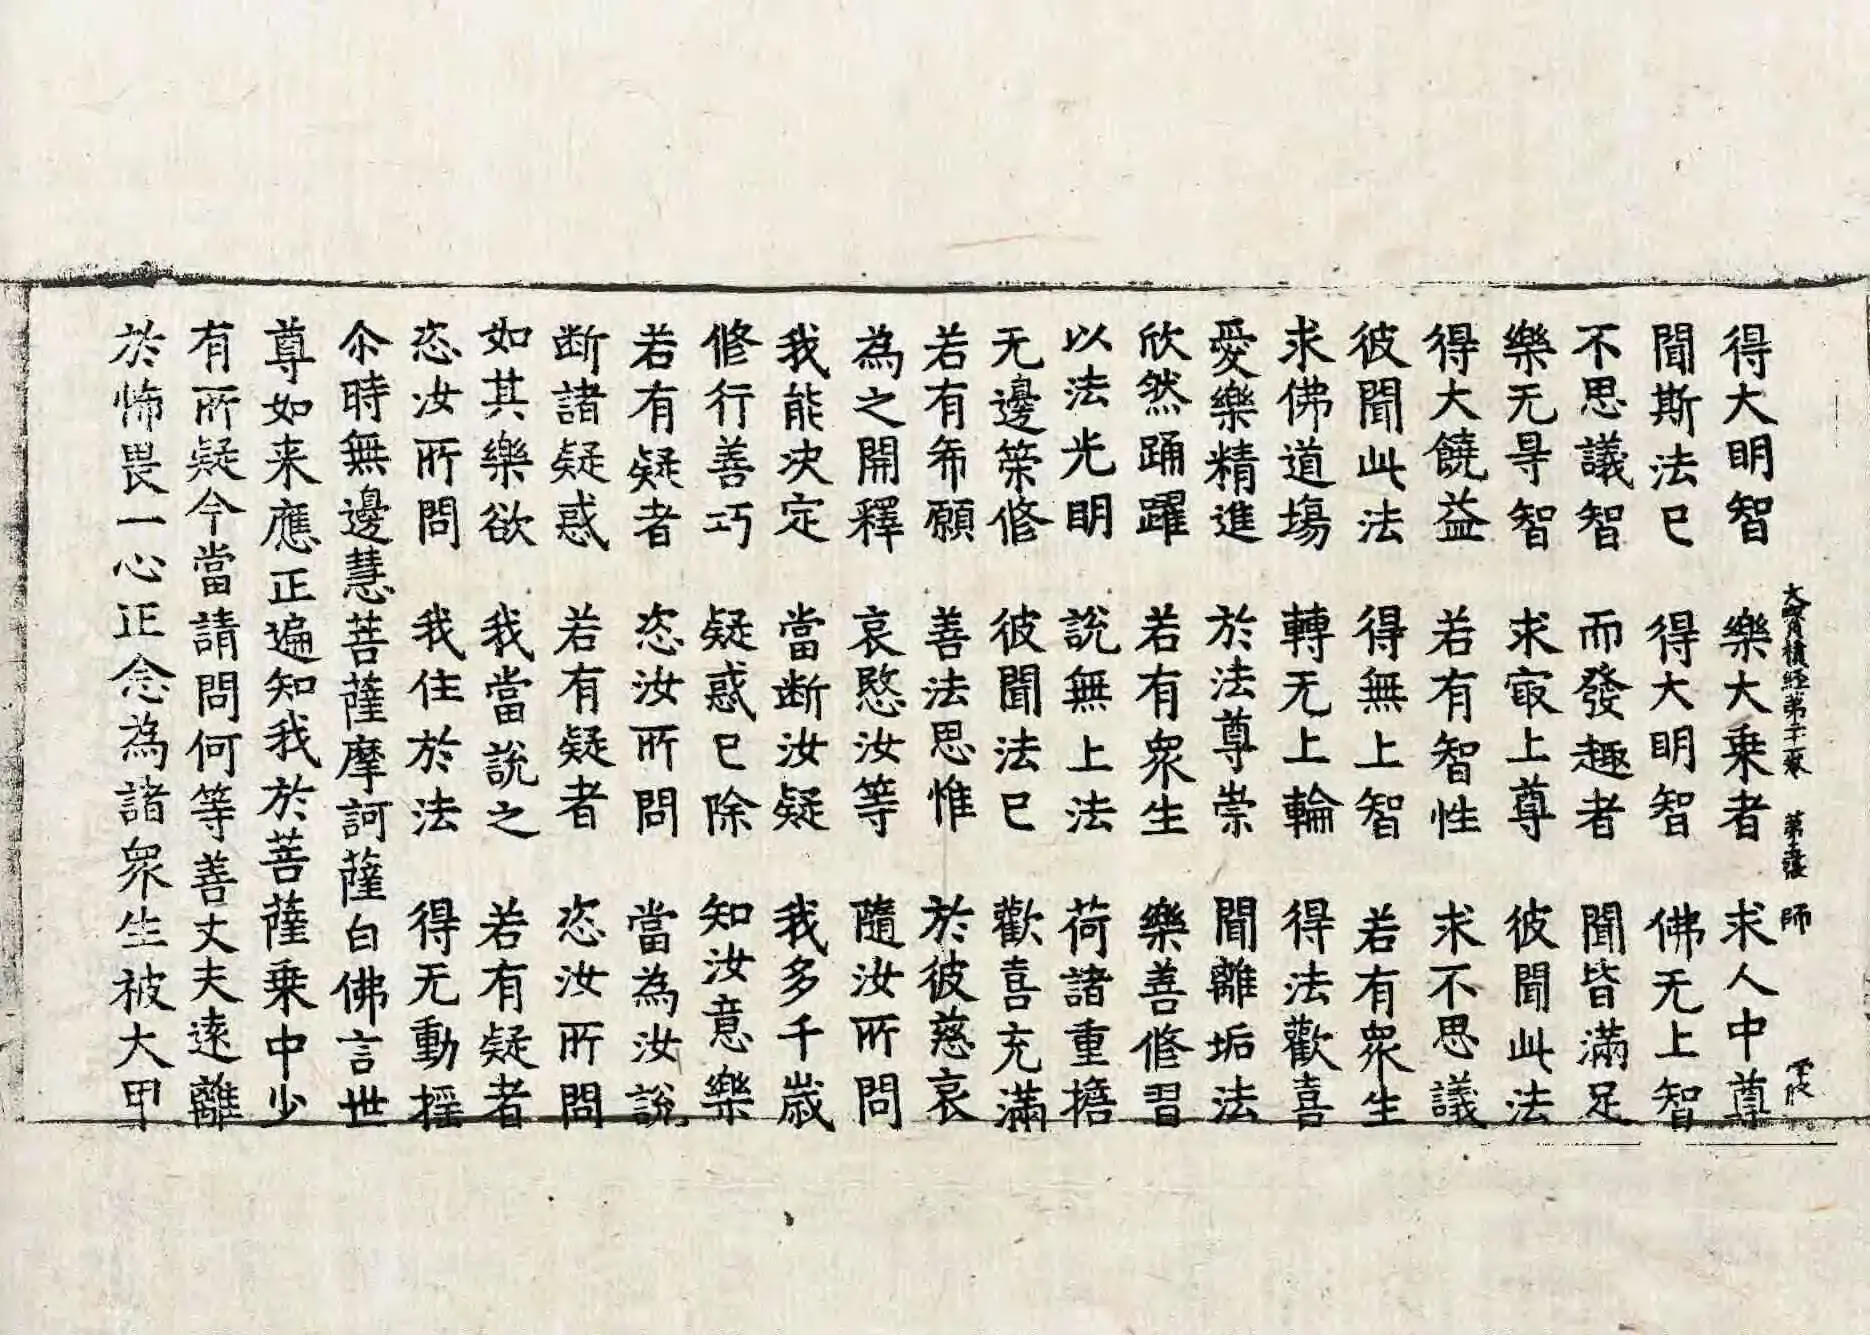 大寶積經第二十一卷 第五張 師
得大明智 樂大乘者 求人中尊
聞斯法已 得大明智 佛无上智
不思議智 而發趣者 聞皆滿足
樂无㝵智 求㝡上尊 彼聞此法
得大饒益 若有智性 求不思議
彼聞此法 得無上智 若有衆生
求佛道場 轉无上輪 得法歡喜
愛樂精進 於法尊崇 聞離垢法
欣然踊躍 若有衆生 樂善修習
以法光明 說無上法 荷諸重擔
无邊策修 彼聞法已 歡喜充滿
若有希願 善法思惟 於彼慈哀
為之開釋 哀愍汝等 隨汝所問
我能决定 當斷汝疑 我多千歲
修行善巧 疑惑已除 知汝意樂
若有疑者 恣汝所問 當為汝說
断諸疑惑 若有疑者 恣汝所問
如其樂欲 我當說之 若有疑者
恣汝所問 我住於法 得无動摇
尒時無邊慧菩薩摩訶薩白佛言世
尊如来應正遍知我於菩薩乘中少
有所疑今當請問何等善丈夫遠離
於怖畏一心正念為諸衆生被大甲